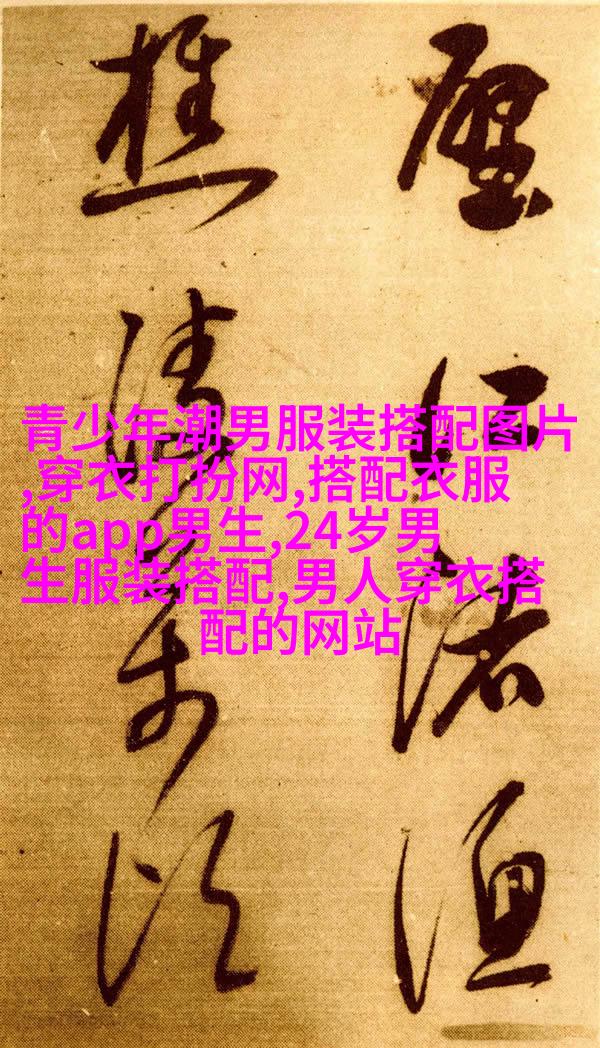 青少年潮男服装搭配图片
,穿衣打扮网,搭配衣服
的app男生,24岁男
生服装搭配,男人穿衣搭
配的网站
江渚漁
樵清